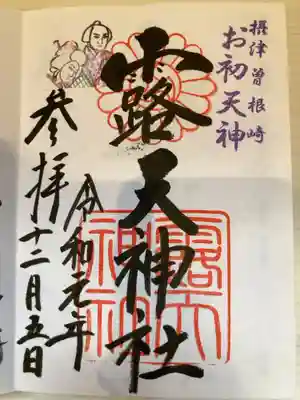 摂津曽根崎
お初天神
露天神社
令和元年
十二月五日
参拝
露天
神社